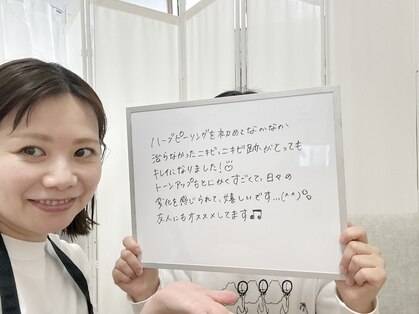 ハーブピーリングを初めてなかなか
治らなかったニキビ、ニキビ跡がとっても
キレイになりました!☺
トーンアップもとにかくすごくて、日々の
変化を感じられて、嬉しいです…(^^)。
友人にもオススメしてます♫